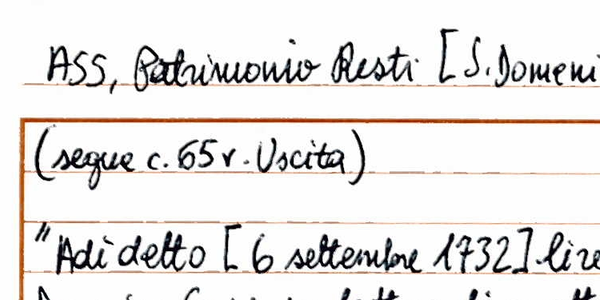 ASS, Patrimonio Resti [S. Domeni
(segue c. 65 v. Uscita)
"Adi detto [6 settembre 1732] lire